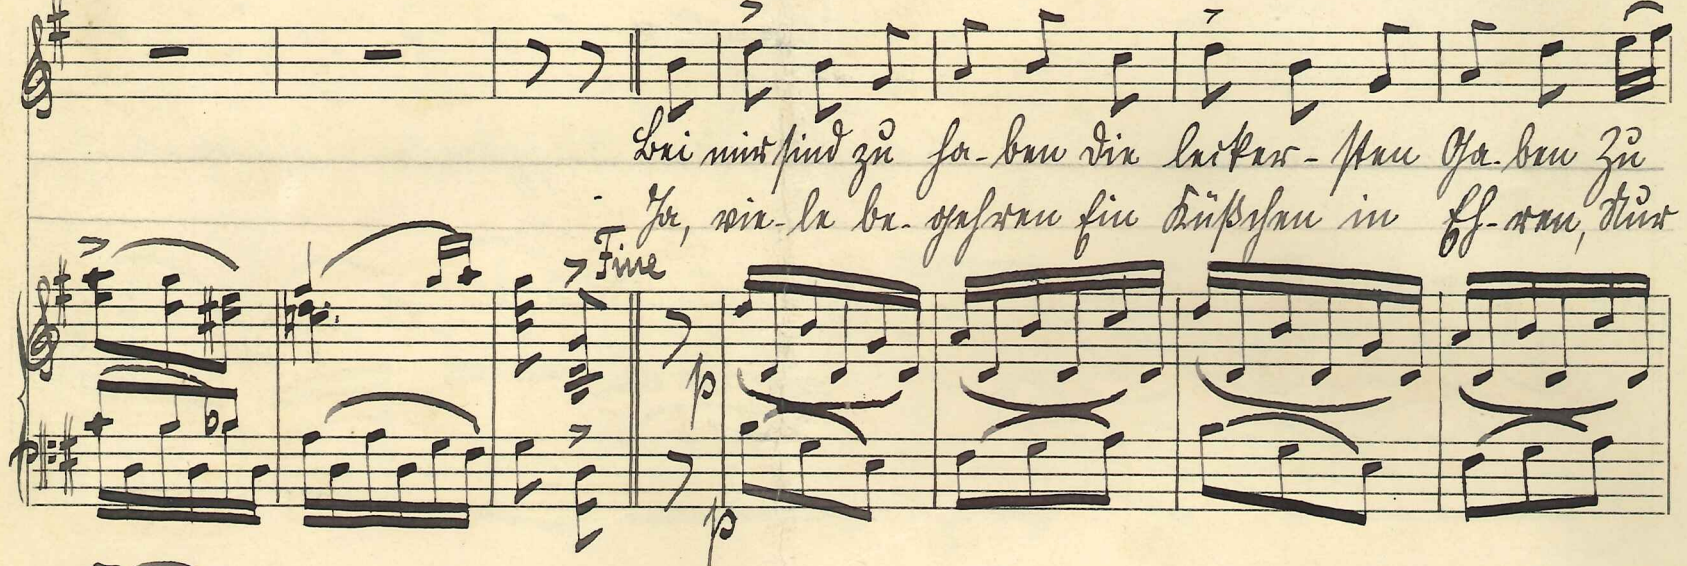 Bei mir sind zu ha-ben die lecker-sten Ga-ben Zu
Ja, vie-le be-gehren Ein Küßchen in Eh-ren, Nur
Fine
p
p